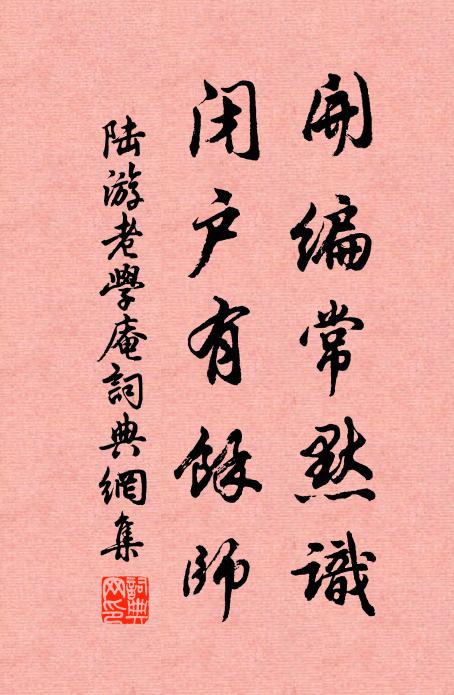 開編常默識
閉户有餘師
陸游老學庵詞典網集
詞典网印